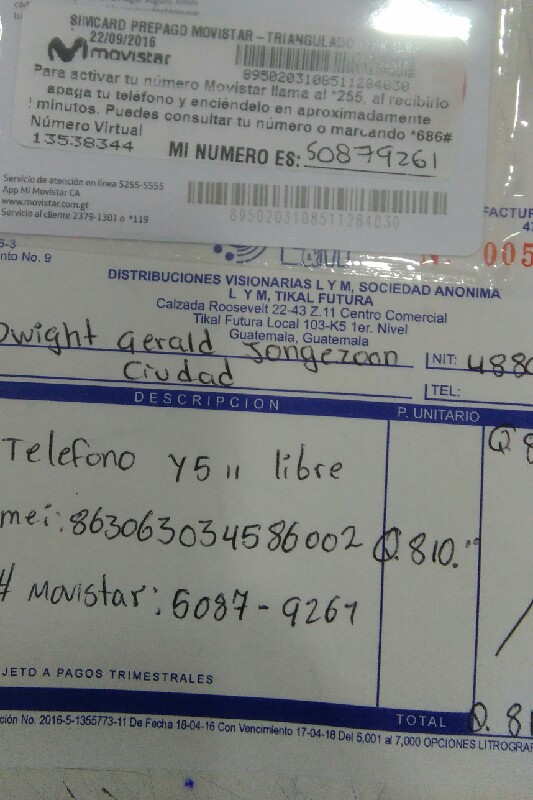 SIMCARD PREPAGO MOVISTAR - TRIANGULADO
22/09/2016
movistar
8950203108511284030
Para activar tu número Movistar llama al *255, al recibirlo
apaga tu teléfono y enciéndelo en aproximadamente
! minutos. Puedes consultar tu número o marcando *686#
Número Virtual
13538344
MI NUMERO ES: 50879261
Servicio de atención en línea 5255-5555
App Mi Movistar CA
www.movistar.com.gt
Servicio al cliente 2379-1301 o *119
8950203108511284030
FACTUR
6-3
nto No. 9
005
DISTRIBUCIONES VISIONARIAS L Y M, SOCIEDAD ANONIMA
L Y M, TIKAL FUTURA
Calzada Roosevelt 22-43 Z.11 Centro Comercial
Tikal Futura Local 103-K5 1er. Nivel
Guatemala, Guatemala
Dwight Gerald Jongezoon
NIT: 4880
Ciudad
TEL:
DESCRIPCION
P. UNITARIO
Telefono Y5 II libre
Q 8
mei: 863063034586002
Q. 810.
# Movistar: 5087-9261
JETO A PAGOS TRIMESTRALES
TOTAL
Q. 81
ción No. 2016-5-1355773-11 De Fecha 18-04-16 Con Vencimiento 17-04-16 Del 5,001 al 7,000 OPCIONES LITROGRAF